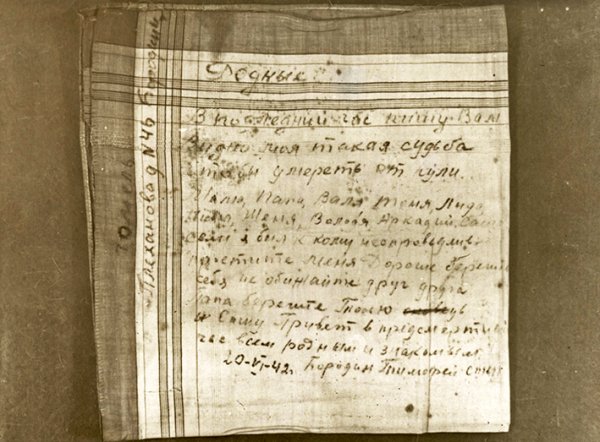 Родные
В последний час пишу Вам
Видно моя такая судьба
чтобы умереть от пули.
Папа, Валя Женя Лида
Женя, Володя, Аркадий, Саша
если я был к кому несправедлив
простите меня Дорогие берегите
себя не обижайте друг друга
Папа берегите Тоню
и Сашу Привет в предсмертный
час всем родным и знакомым
20-VI-42 Бородин Тимофей Степ
Гомель
Плеханова д N 46 Бородину